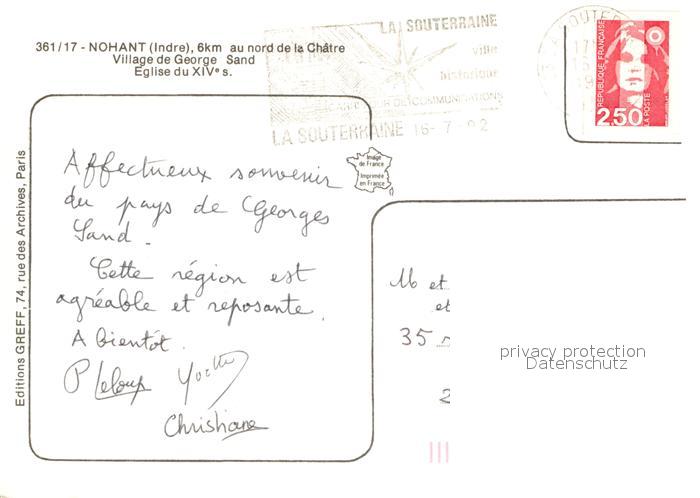 361/17 - NOHANT (Indre), 6km au nord de la Châtre
Village de George Sand
Eglise du XIVe s.
LA SOUTERRAINE
ville
historique
CARREFOUR DE COMMUNICATIONS
LA SOUTERRAINE 16-7-92
REPUBLIQUE FRANÇAISE
LA POSTE
2,50
Editions GREFF, 74, rue des Archives, Paris
Image
de France
Imprimée
en France
Affectueux souvenir
du pays de Georges
Sand.
Cette région est
agréable et reposante.
A bientôt.
P Leloup Yvette
Christiane
M et
et
35
2
privacy protection
Datenschutz